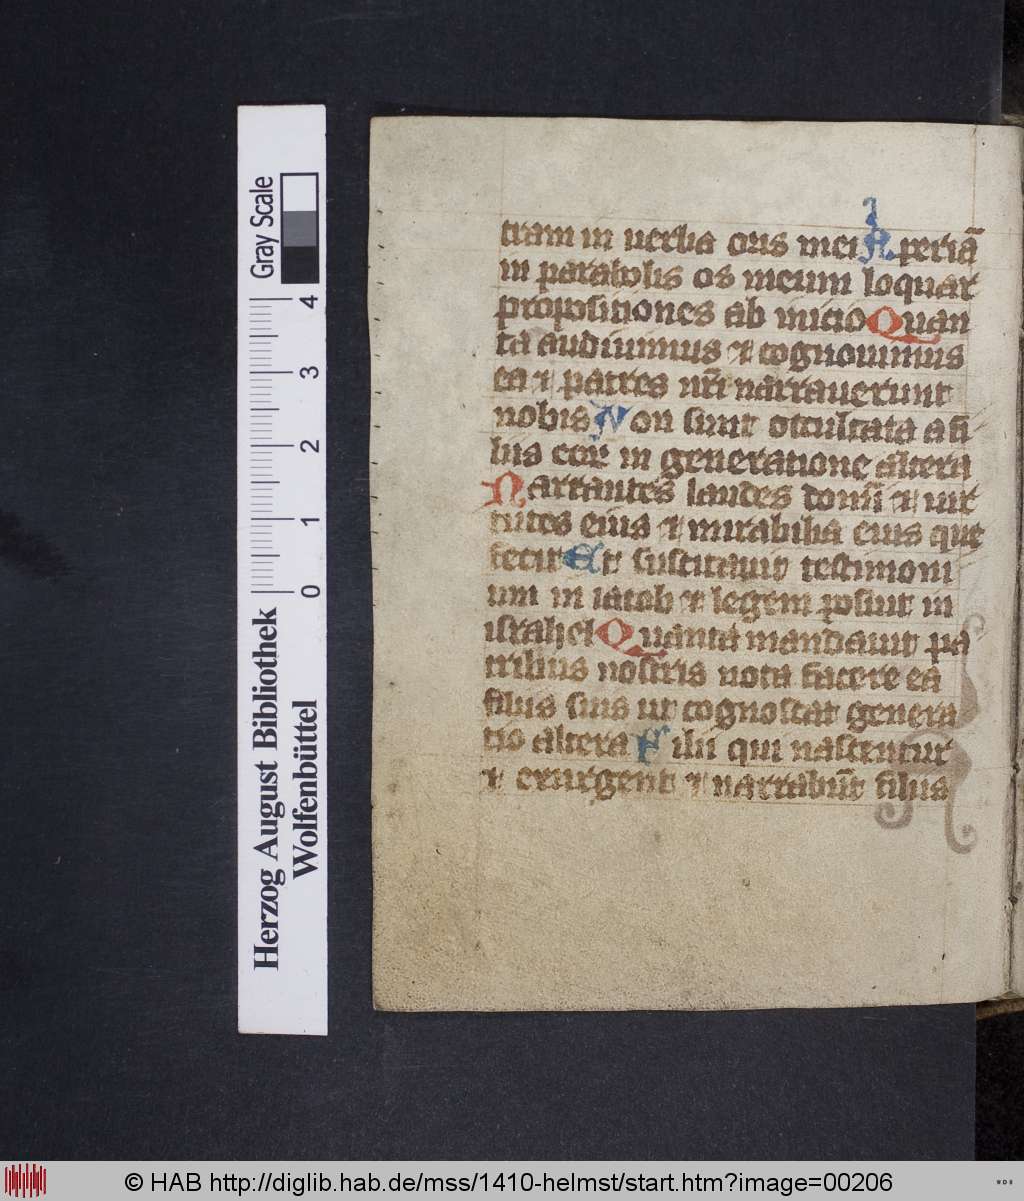 tram in uerba oris mei Aperiā
in parabolis os meum loquar
propositiones ab inicio Quan
ta audiuimus ⁊ cognouimus
ea ⁊ patres nr̄i narrauerunt
nobis Non sunt occultata a fi
liis eoꝝ in generatione altera
Narrantes laudes domī ⁊ uir
tutes eius ⁊ mirabilia eius que
fecit Et suscitauit testimoni
um in iacob ⁊ legem posuit in
israhel Quanta mandauit pa
tribus nostris nota facere ea
filiis suis ut cognoscat genera
tio altera Filii qui nascentur
⁊ exurgent ⁊ narrabūt filiis
Gray Scale
0 1 2 3 4
Herzog August Bibliothek
Wolfenbüttel
© HAB http://diglib.hab.de/mss/1410-helmst/start.htm?image=00206